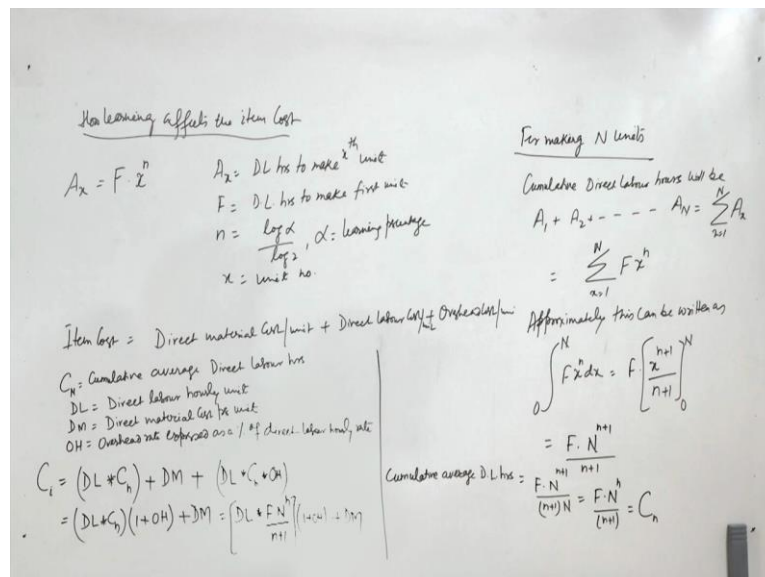 How learning affects the item Cost
Aₓ = F·xⁿ
Aₓ = DL hrs to make xᵗʰ unit
F = D.L. hrs to make first unit
n = log α / log 2, α = learning percentage
x = unit no.
Item Cost = Direct material Cost/unit + Direct labour Cost/unit + Overhead Cost/uni
Cₙ = Cumulative average Direct Labour hrs
DL = Direct labour hourly unit
DM = Direct material Cost per unit
OH = Overhead rate expressed as a % of direct labour hourly rate
Cᵢ = (DL * Cₙ) + DM + (DL * Cₙ * OH)
= (DL * Cₙ)(1+OH) + DM = [DL * F Nⁿ / n+1](1+OH) + DM
For making N units
Cumulative Direct Labour hours will be
A₁ + A₂ + - - - - Aɴ = ∑ₓ₌₁ᴺ Aₓ
= ∑ₓ₌₁ᴺ F xⁿ
Approximately this Can be written as
∫₀ᴺ F xⁿ dx = F [xⁿ⁺¹ / n+1]₀ᴺ
= F·Nⁿ⁺¹ / n+1
Cumulative average D.L hrs = F·Nⁿ⁺¹ / (n+1)N = F·Nⁿ / (n+1) = Cₙ